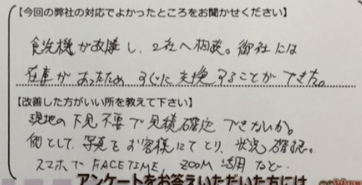 【今回の弊社の対応でよかったところをお聞かせください】
食洗機が故障し、2社へ相談。御社には
在庫があったため すぐに交換することができた。
【改善した方がいい所を教えて下さい】
現地の下見不要で見積確定できないか。
例として、写真をお客様にてとり、状況確認。
スマホで FACETIME, ZOOM 活用など…
アンケートをお答えいただいた方には